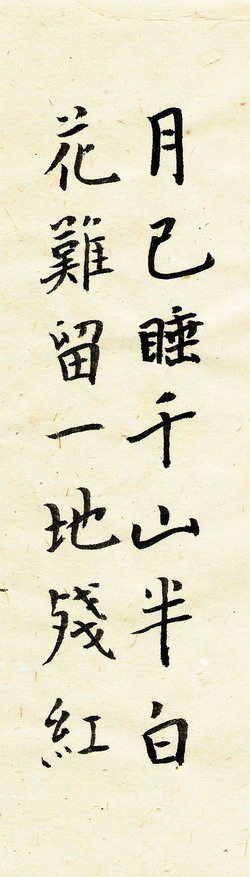 月已睡千山半白
花難留一地殘紅